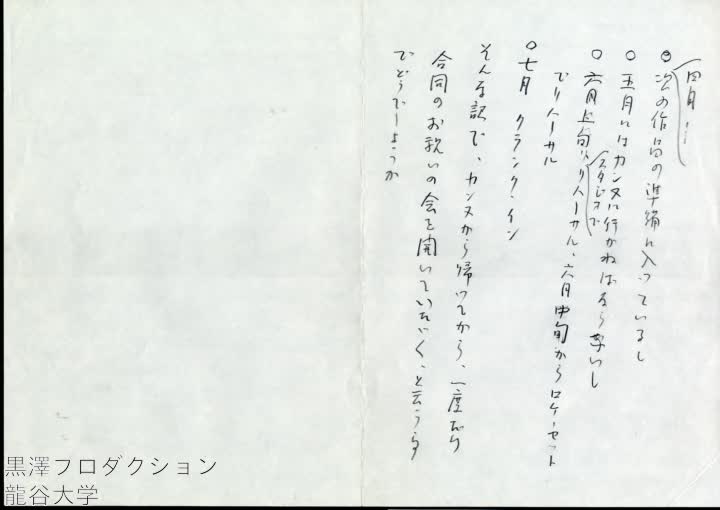 四月……
○次の作品の準備に入っているし
○五月にはカンヌに行かねばならないし
○六月上旬にスタジオでリハーサル、六月中旬からロケーセット
でリハーサル
○七月 クランク・イン
そんな訳で、カンヌから帰ってから、一度だけ
合同のお祝いの会を開いていただく、と云う
でどうでしょうか
黒澤プロダクション
龍谷大学